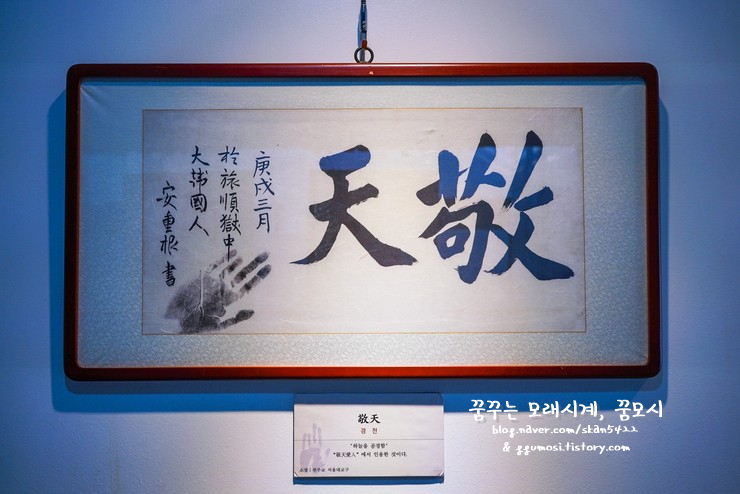 敬天
庚戌三月
於旅順獄中
大韓國人
安重根書
敬天
경 천
"하늘을 공경함"
"敬天愛人" 에서 인용한 것이다.
소장 | 천주교 서울대교구
꿈꾸는 모래시계, 꿈모시
blog.naver.com/skan5422
& ggumosi.tistory.com